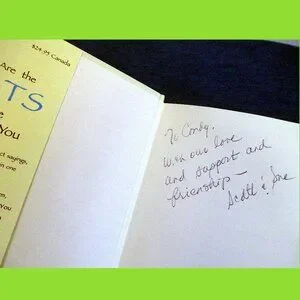 $24.95 Canada
Are the
TS
e
You
ct sayings,
in one
You
To Cindy,
With our love
and support and
friendship —
Scott &